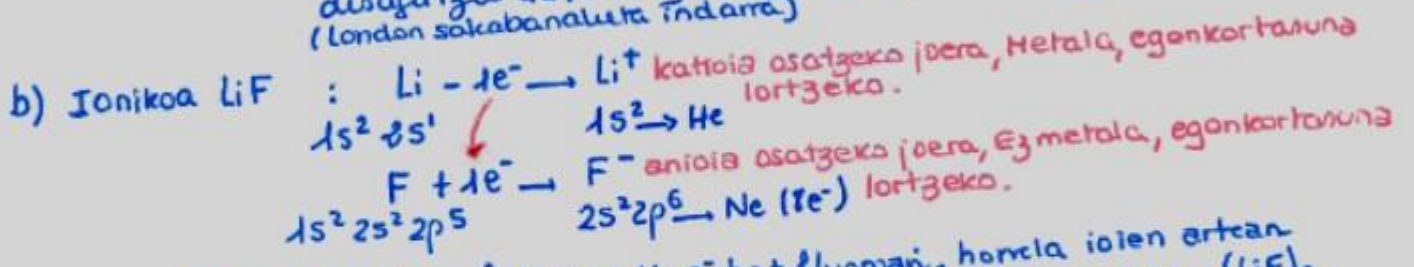 (London sakabanaketa indarra)
b) Ionikoa LiF : Li - 1e⁻ → Li⁺ katioia osatzeko joera, Metala, egonkortasuna
lortzeko.
1s² 2s¹ 1s² → He
F + 1e⁻ → F⁻ anioia osatzeko joera, Ez metala, egonkortasuna
lortzeko.
1s² 2s² 2p⁵ 2s² 2p⁶ → Ne (8e⁻)
horrela ioien artean
(LiF).